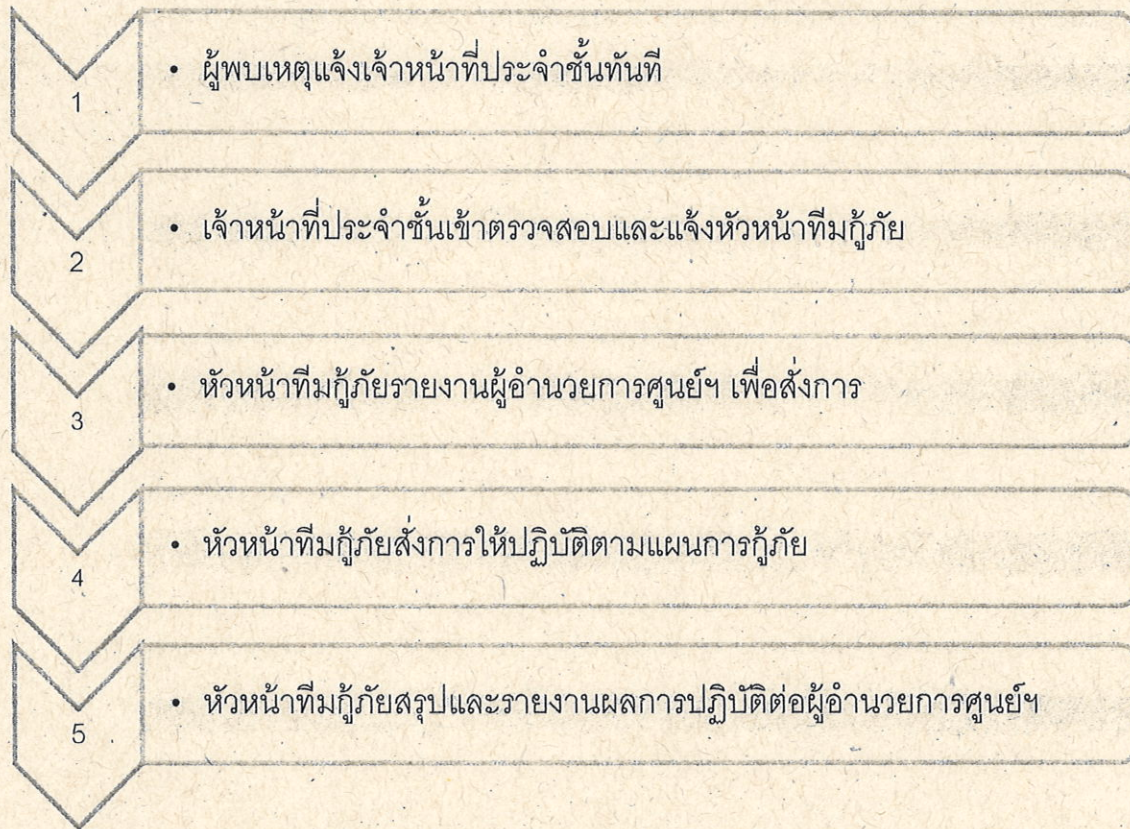 1
• ผู้พบเหตุแจ้งเจ้าหน้าที่ประจำชั้นทันที
2
• เจ้าหน้าที่ประจำชั้นเข้าตรวจสอบและแจ้งหัวหน้าทีมกู้ภัย
3
• หัวหน้าทีมกู้ภัยรายงานผู้อำนวยการศูนย์ฯ เพื่อสั่งการ
4
• หัวหน้าทีมกู้ภัยสั่งการให้ปฏิบัติตามแผนการกู้ภัย
5
• หัวหน้าทีมกู้ภัยสรุปและรายงานผลการปฏิบัติต่อผู้อำนวยการศูนย์ฯ